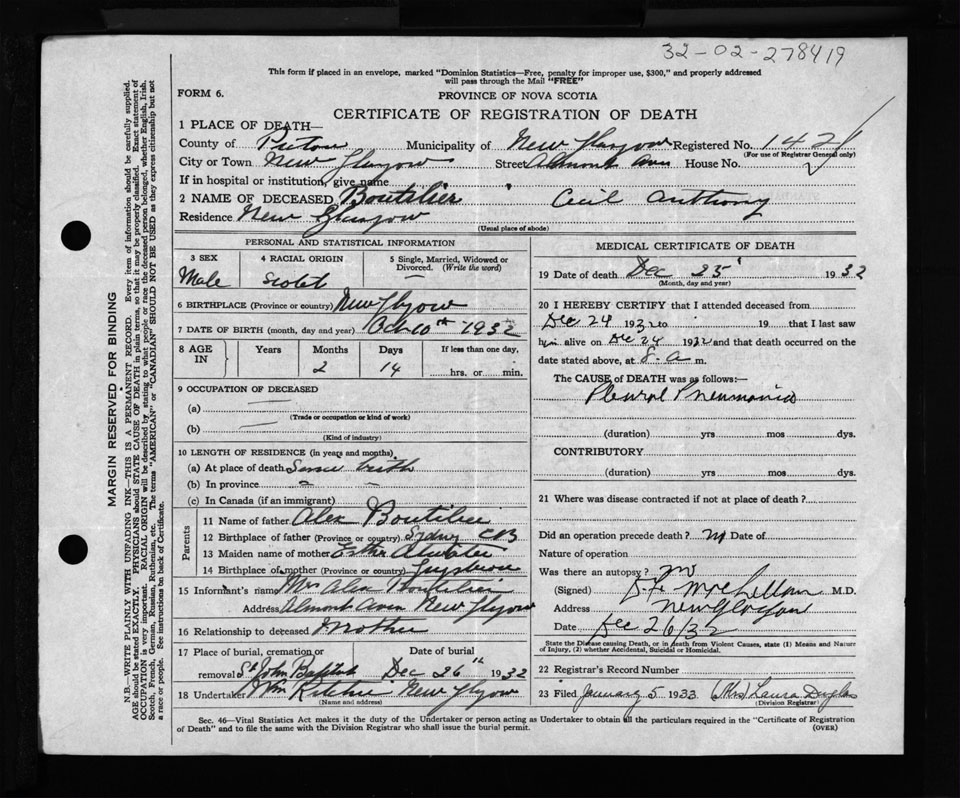 32-02-278419
This form if placed in an envelope, marked "Dominion Statistics—Free, penalty for improper use, $300," and properly addressed
will pass through the Mail "FREE"
FORM 6.
PROVINCE OF NOVA SCOTIA
CERTIFICATE OF REGISTRATION OF DEATH
1 PLACE OF DEATH—
County of Pictou Municipality of New Glasgow Registered No. 1421
(For use of Registrar General only)
City or Town New Glasgow Street Almont Ave House No.
If in hospital or institution, give name
2 NAME OF DECEASED Boutilier Cecil Anthony
Residence New Glasgow
(Usual place of abode)
PERSONAL AND STATISTICAL INFORMATION
3 SEX 4 RACIAL ORIGIN 5 Single, Married, Widowed or
Divorced. (Write the word)
Male Scotch
6 BIRTHPLACE (Province or country) New Glasgow
7 DATE OF BIRTH (month, day and year) Oct 10th 1932
8 AGE IN Years Months Days If less than one day,
2 14 hrs. or min.
9 OCCUPATION OF DECEASED
(a) —
(Trade or occupation or kind of work)
(b) —
(Kind of industry)
10 LENGTH OF RESIDENCE (in years and months)
(a) At place of death Since birth
(b) In province
(c) In Canada (if an immigrant)
Parents
11 Name of father Alex Boutilier
12 Birthplace of father (Province or country) Sydney CB
13 Maiden name of mother Esther
14 Birthplace of mother (Province or country)
15 Informant's name Mrs Alex Boutilier
Address Almont Aven New Glasgow
16 Relationship to deceased Mother
17 Place of burial, cremation or Date of burial
removal St John Baptist Dec 26th 1932
18 Undertaker Wm Ritchie New Glasgow
(Name and address)
MEDICAL CERTIFICATE OF DEATH
19 Date of death Dec 25 1932
(Month, day and year)
20 I HEREBY CERTIFY that I attended deceased from
Dec 24 1932 to 19 that I last saw
him alive on Dec 24 1932 and that death occurred on the
date stated above, at 8 a m.
The CAUSE of DEATH was as follows:—
Pleural Pneumonia
(duration) yrs mos dys.
CONTRIBUTORY
(duration) yrs mos dys.
21 Where was disease contracted if not at place of death?
Did an operation precede death? no Date of
Nature of operation
Was there an autopsy? no
(Signed) M.D.
Address New Glasgow
Date Dec 26/32
State the Disease causing Death, or in Death from Violent Causes, state (1) Means and Nature
of Injury, (2) whether Accidental, Suicidal or Homicidal.
22 Registrar's Record Number
23 Filed January 5 1933 (Mrs) Laura Douglas
(Division Registrar)
Sec. 46—Vital Statistics Act makes it the duty of the Undertaker or person acting as Undertaker to obtain all the particulars required in the "Certificate of Registration
of Death" and to file the same with the Division Registrar who shall issue the burial permit.
(OVER)
MARGIN RESERVED FOR BINDING
N.B.—WRITE PLAINLY WITH UNFADING INK—THIS IS A PERMANENT RECORD. Every item of information should be carefully supplied.
AGE should be stated EXACTLY. PHYSICIANS should STATE CAUSE OF DEATH in plain terms, so that it may be properly classified. Exact statement of
OCCUPATION is very important. RACIAL ORIGIN will be described by stating to what people or race the deceased person belonged, whether English, Irish,
Scotch, French, German, Russian, Ruthenian, etc. The terms "AMERICAN" or "CANADIAN" SHOULD NOT BE USED as they express citizenship but not
a race or people. See instructions on back of Certificate.